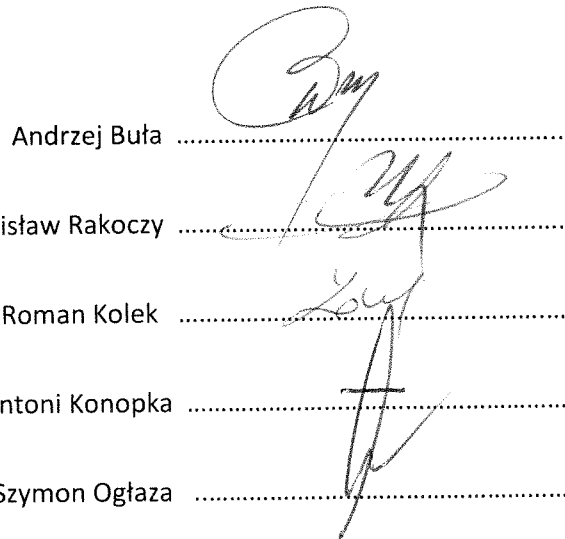 Andrzej Buła ........................................................
isław Rakoczy ........................................................
Roman Kolek ........................................................
ntoni Konopka ........................................................
Szymon Ogłaza ........................................................